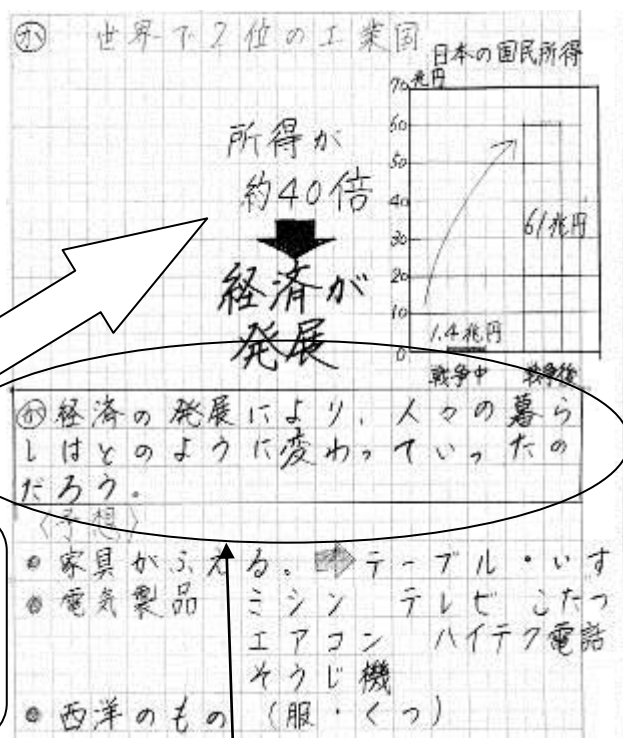 ㋕ 世界で2位の工業国
日本の国民所得
兆円
70
60
50
40
30
20
10
0
61兆円
1.4兆円
戦争中 戦争後
所得が
約40倍
経済が
発展
㋕経済の発展により、人々の暮ら
しはどのように変わっていったの
だろう。
〈予想〉
●家具がふえる。➡テーブル・いす
●電気製品 ミシン テレビ こたつ
エアコン ハイテク電話
そうじ機
●西洋のもの (服・くつ)